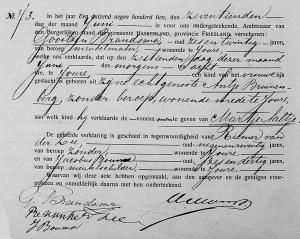 N° 73.
In het jaar Een duizend negen honderd tien, den zeventienden
dag der maand Juni is voor ons ondergeteekende, Ambtenaar van
den Burgerlijken Stand der gemeente HASKERLAND, provincie FRIESLAND, verschenen:
Brandsma oud zes en twintig jaren,
van beroep meubelmaker, wonende te Joure,
welke ons verklaarde, dat op den zestienden dag dezer maand
Juni des morgens ten
ure te Joure een kind van het vrouwelijk
geslacht is geboren uit zijne echtgenoote Antje Bruinen-
berg, zonder beroep, wonende mede te Joure, aan
welk kind hij verklaarde de voornamen te geven van Martje Saltje
De gemelde verklaring is geschied in tegenwoordigheid van Riemer van
der Zee, oud negen en zeventig jaren,
van beroep zonder, wonende te Joure,
en van Jacobus Bouma oud zes en dertig jaren,
van beroep, wonende te Joure.
En is deze acte hiervan opgemaakt, aan den aangever en de getuigen voorge-
lezen en onmiddellijk daarna met hen onderteekend.
Brandsma
R. van der Zee
J Bouma